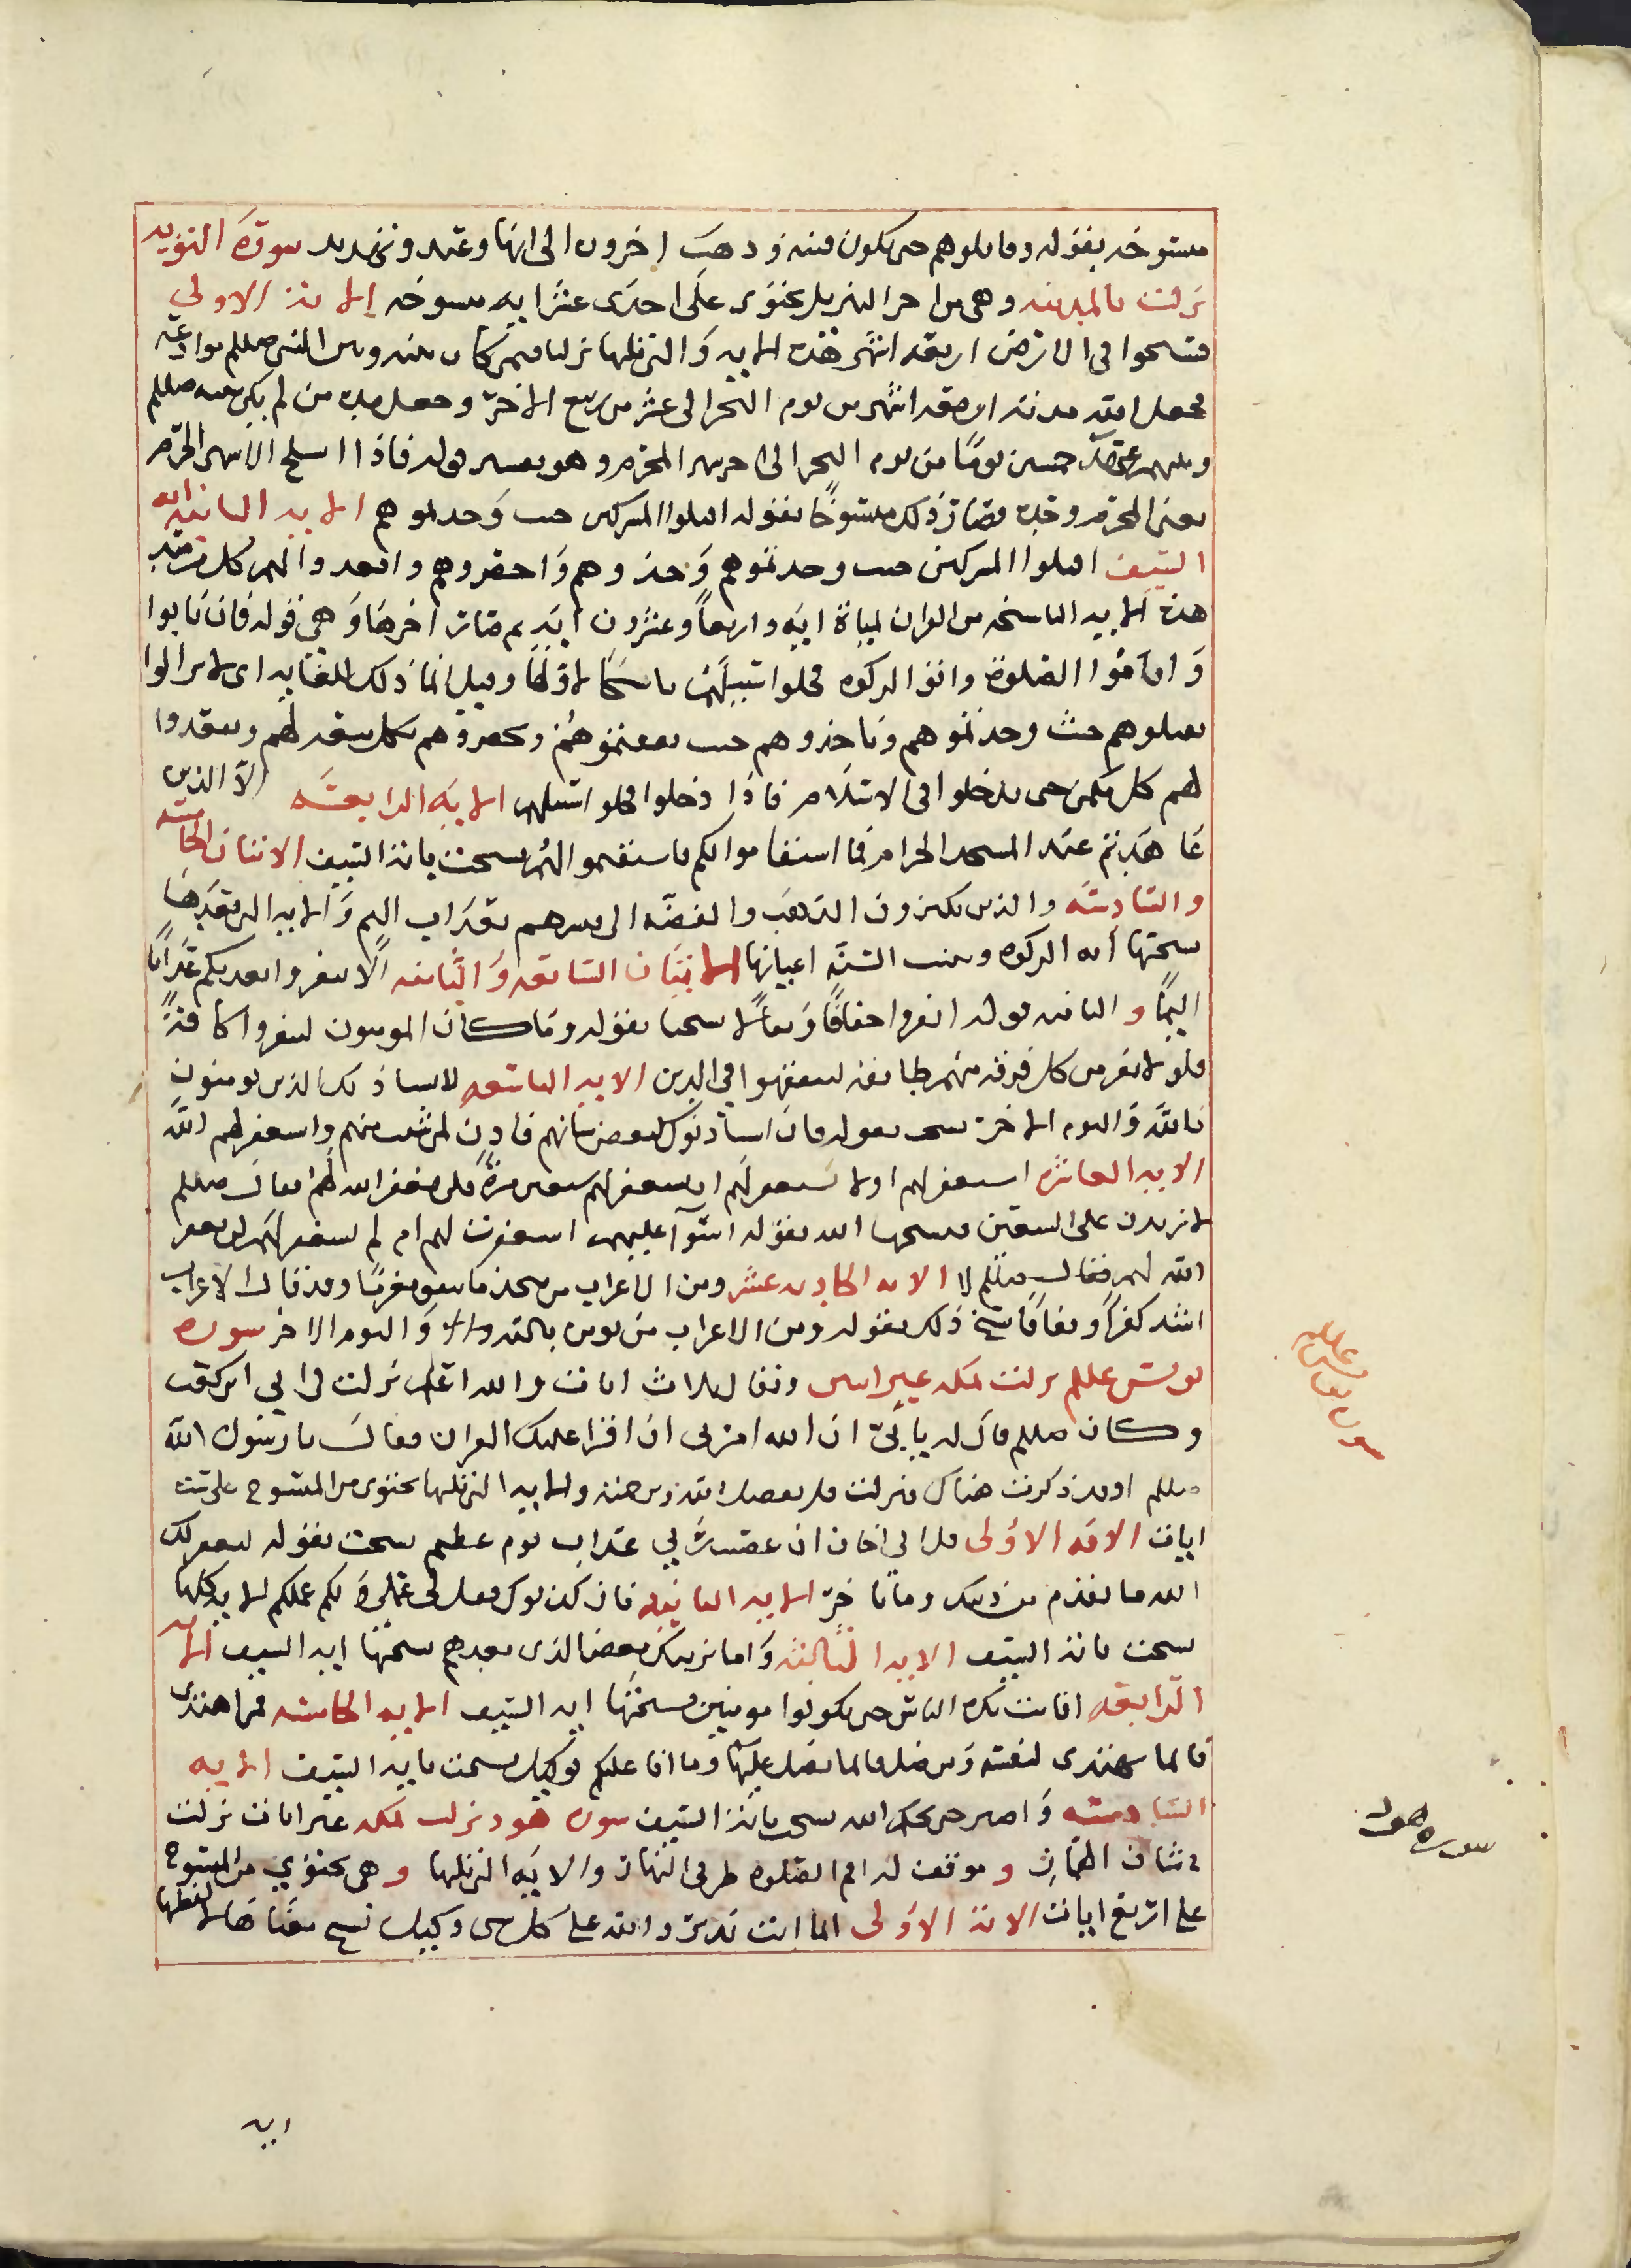 منسوخه بقوله وقاتلوهم حتى لا تكون فتنه وذهب اخرون الى انها وعيد وتهديد سورة التوبه
نزلت بالمدينه وهي من اخر التنزيل تحتوى على احدى عشر ايه منسوخه الايه الاولى
فسيحوا في الارض اربعة اشهر هذه الايه والتي تليها نزلتا فيمن كان بينه وبين النبي صللم موادعه
فجعل الله مدته اربعة اشهر من يوم النحر الى عشر من ربيع الاخر وجعل مدة من لم يكن بينه صللم
وبينهم عهد خمسين يوما من يوم النحر الى اخر المحرم وهو تفسير قوله فاذا انسلخ الاشهر الحرم
يعنى المحرم وحده فصار ذلك منسوخا بقوله اقتلوا المشركين حيث وجدتموهم الايه الثانيه ايه
السيف اقتلوا المشركين حيث وجدتموهم وخذوهم واحصروهم واقعدوا لهم كل مرصد
هذه الايه الناسخه من القران لمياة ايه واربعا وعشرون ايه ثم صار اخرها وهي قوله فان تابوا
واقاموا الصلوة واتوا الزكوه فخلوا سبيلهم ناسخا لاولها وقيل انما ذلك للغايه اى لا تزالوا
تقتلوهم حيث وجدتموهم وتاخذوهم حيث وتحصروهم وتقعدوا
لهم كل مكمن حتى يدخلوا في الاسلام فاذا دخلوا فخلوا سبيلهم الايه الرابعه الا الذين
عاهدتم عند المسجد الحرام فما استقاموا لكم فاستقيموا لهم نسخت باية السيف الايتان الخامسه
والسادسه والذين يكنزون الذهب والفضه الى فبشرهم بعذاب اليم والايه التي بعدها
نسختها ايه الزكوه وبينت السنه اعيانها الايتان السابعه والثامنه الا تنفروا يعذبكم عذابا
اليما والثامنه قوله انفروا خفافا وثقالا نسختا بقوله وما كان المومنون لينفروا كافة
فلولا نفر من كل فرقه منهم طايفه ليتفقهوا في الدين الايه التاسعه لا يستاذنك الذين يومنون
بالله واليوم الاخر نسخت بقوله فان استاذنوك لبعض شانهم فاذن لمن شئت منهم واستغفر لهم الله
الايه العاشره استغفر لهم او لا تستغفر لهم ان تستغفر لهم سبعين مرة فلن يغفر الله لهم فقال صللم
لازيدن على السبعين فنسخها الله بقوله سوآ عليهم استغفرت لهم ام لم تستغفر لهم لن يغفر
الله لهم فقال صللم لا الايه الحاديه عشر ومن الاعراب من يتخذ ما ينفق مغرما وقد قال الاعراب
اشد كفرا ونفاقا نسخ ذلك بقوله ومن الاعراب من يومن بالله واليوم الاخر سورة
يونس عللم نزلت بمكه غير ايتين وتقال ثلاث ايات والله اعلم نزلت في ابي ابن كعب
وكان صللم قال له يا ابيّ ان الله امرني ان اقرا عليك القران فقال يا رسول الله
صللم او قد ذكرت هناك فنزلت قل بفضل الله وبرحمته والايه التي تليها تحتوى من المنسوخ على ست
ايات الايه الاولى قل اني اخاف ان عصيت ربي عذاب يوم عظيم نسخت بقوله ليغفر لك
الله ما تقدم من ذنبك وما تاخر الايه الثانيه فان كذبوك فقل لي عملي ولكم عملكم الايه كلها
نسخت باية السيف الايه الثالثه واما نرينك بعض الذى نعدهم نسختها ايه السيف الايه
الرابعه افانت تكره الناس حتى يكونوا مومنين نسختها ايه السيف الايه الخامسه فمن اهتدى
فانما يهتدى لنفسه ومن ضل فانما يضل عليها وما انا عليكم بوكيل نسخت بايه السيف الايه
السادسه واصبر حتى يحكم الله نسخ باية السيف سورة هود نزلت بمكه غير ايات نزلت
في شان وموقعت له اقم الصلوه طرفي النهار والايه التي تليها وهي تحتوي من المنسوخ
على اربع ايات الايه الاولى انما انت نذير والله على كل شى وكيل نسخ معناها لا لفظها
سورة يونس عليه السلام
سورة هود
ايه